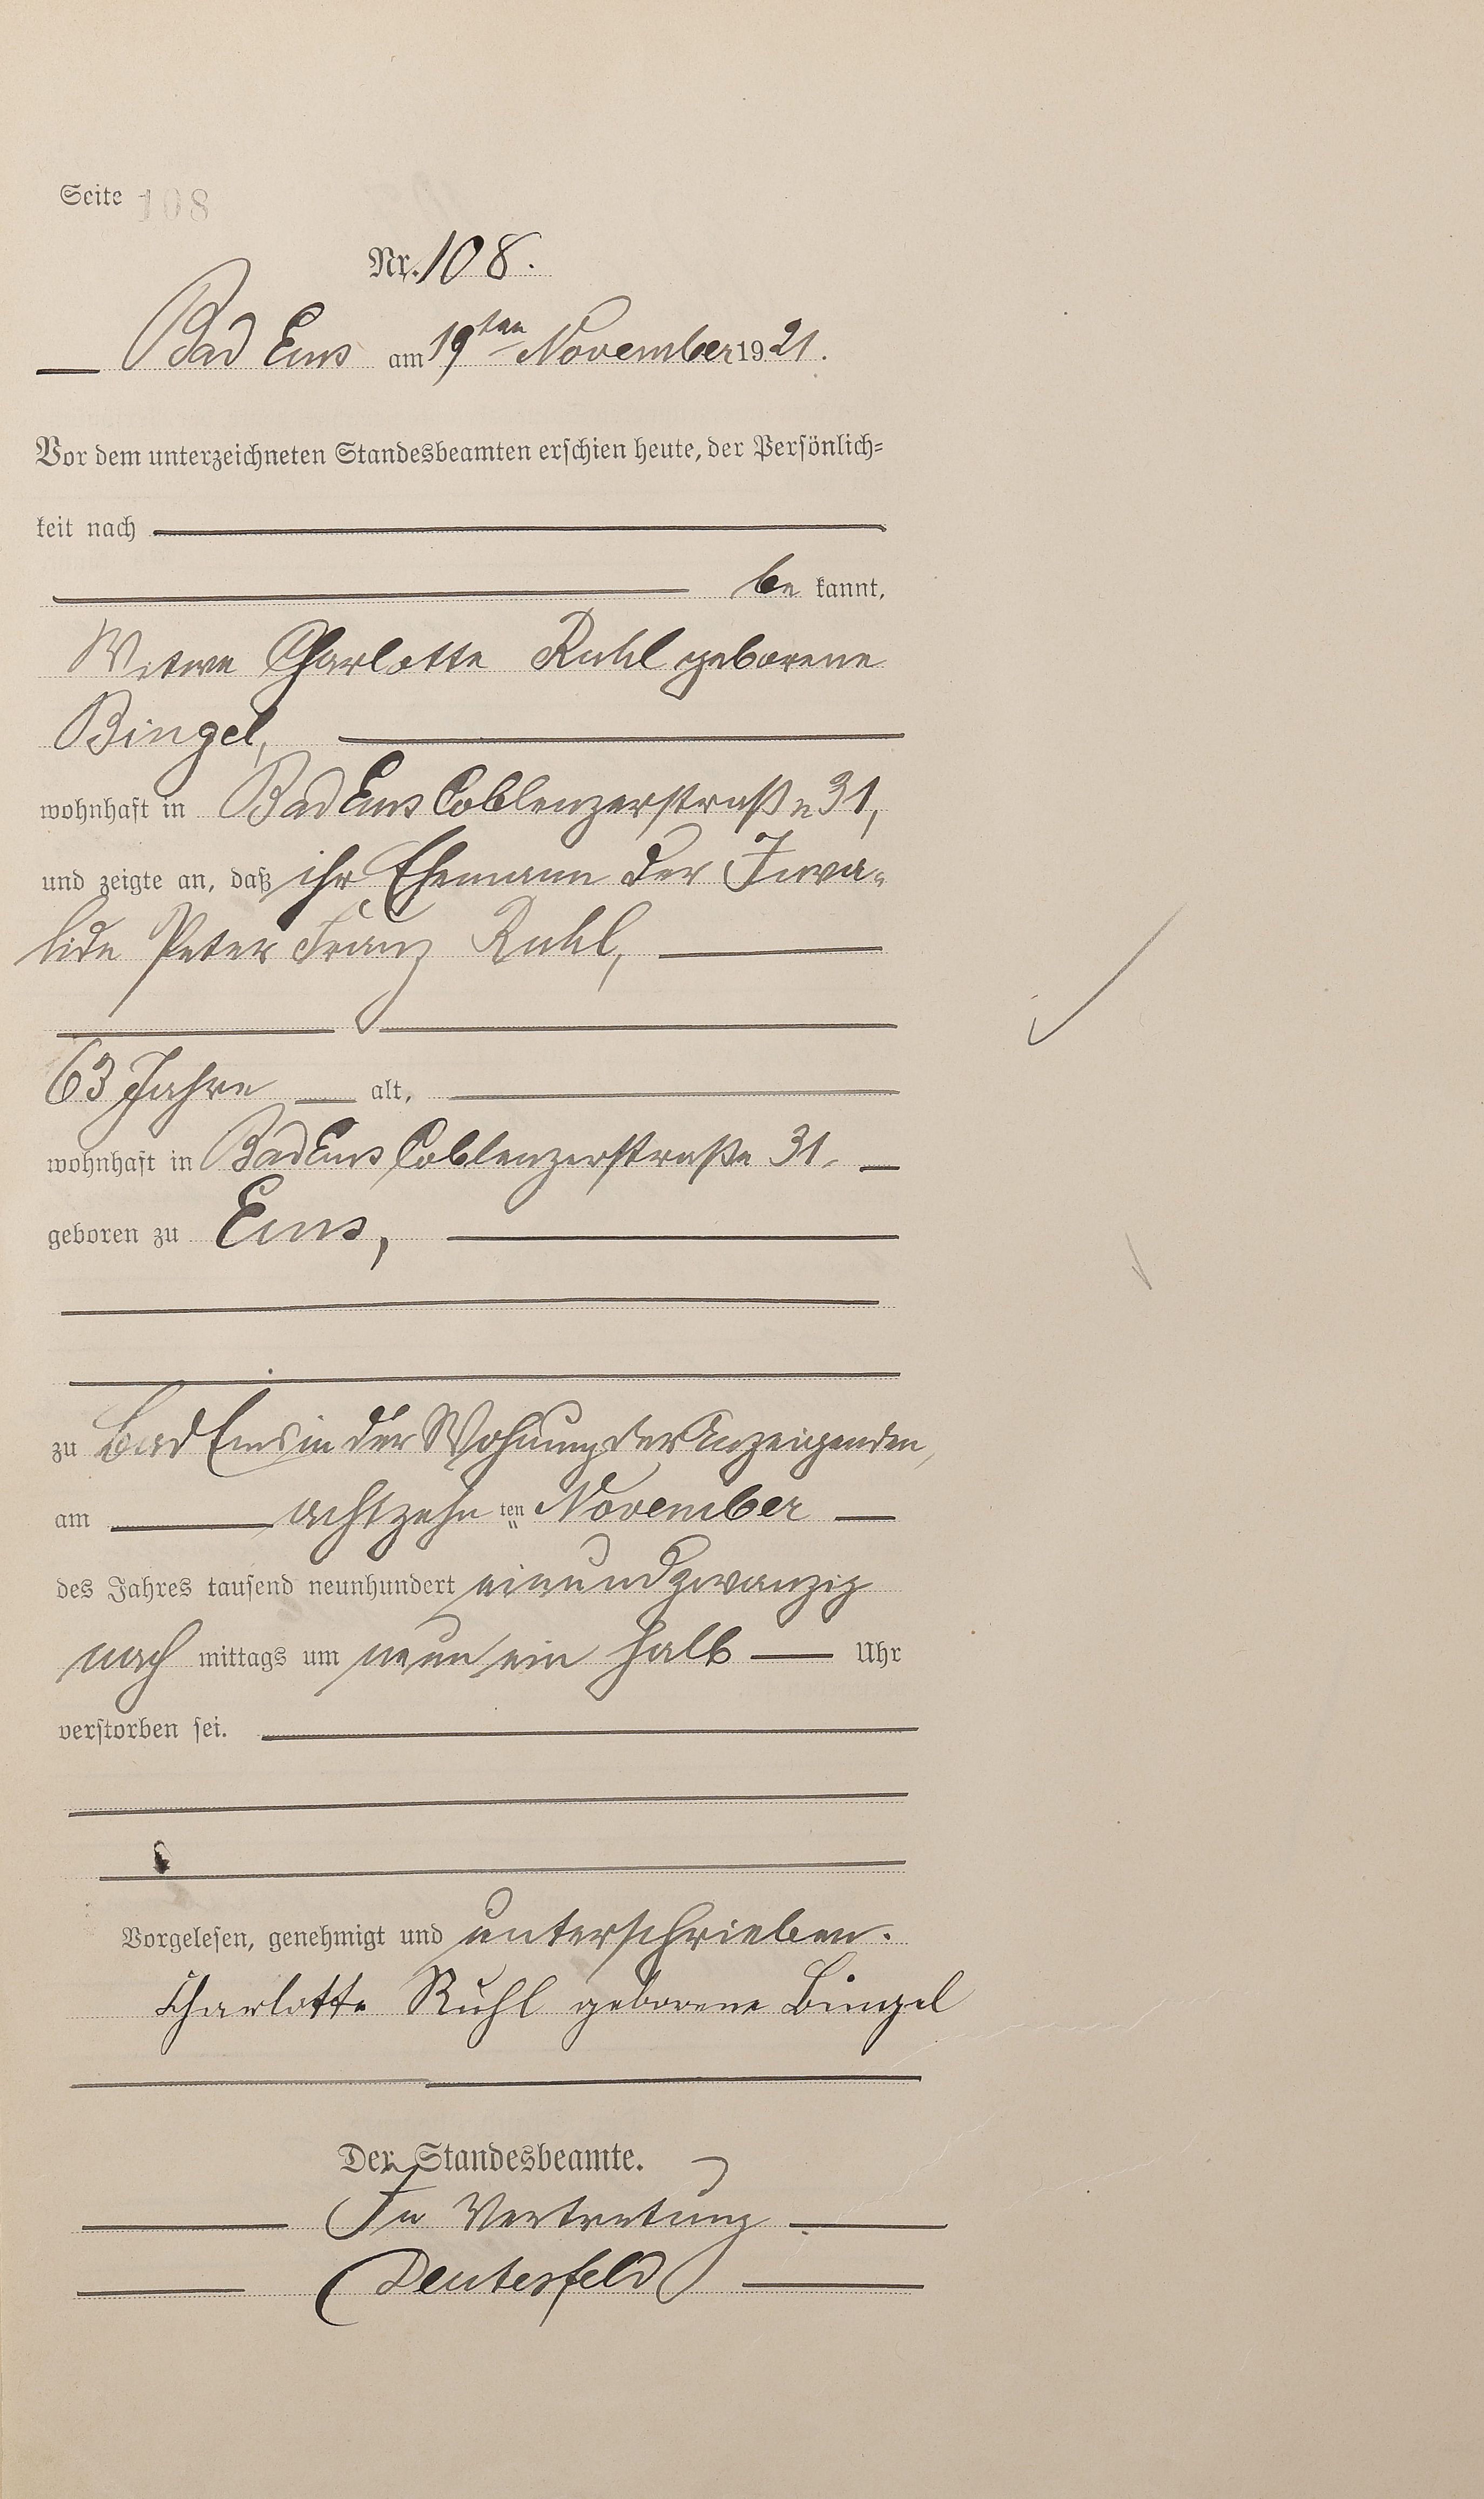 Seite 108
Nr. 108.
Bad Ems am 19ten November 1921.
Vor dem unterzeichneten Standesbeamten erschien heute, der Persönlich-
keit nach
be kannt,
Witwe Charlotte Ruhl geborene
Bingel,
wohnhaft in Bad Ems Coblenzerstraße 31,
und zeigte an, daß ihr Ehemann der Inva-
lide Peter Franz Ruhl,
63 Jahre alt,
wohnhaft in Bad Ems Coblenzerstraße 31.
geboren zu Ems,
zu Bad Ems in der Wohnung der Anzeigenden,
am achtzehn ten November
des Jahres tausend neunhundert einundzwanzig
nach mittags um neun ein halb Uhr
verstorben sei.
Vorgelesen, genehmigt und unterschrieben.
Charlotte Ruhl geborene Bingel
Der Standesbeamte.
In Vertretung
Deutesfeld